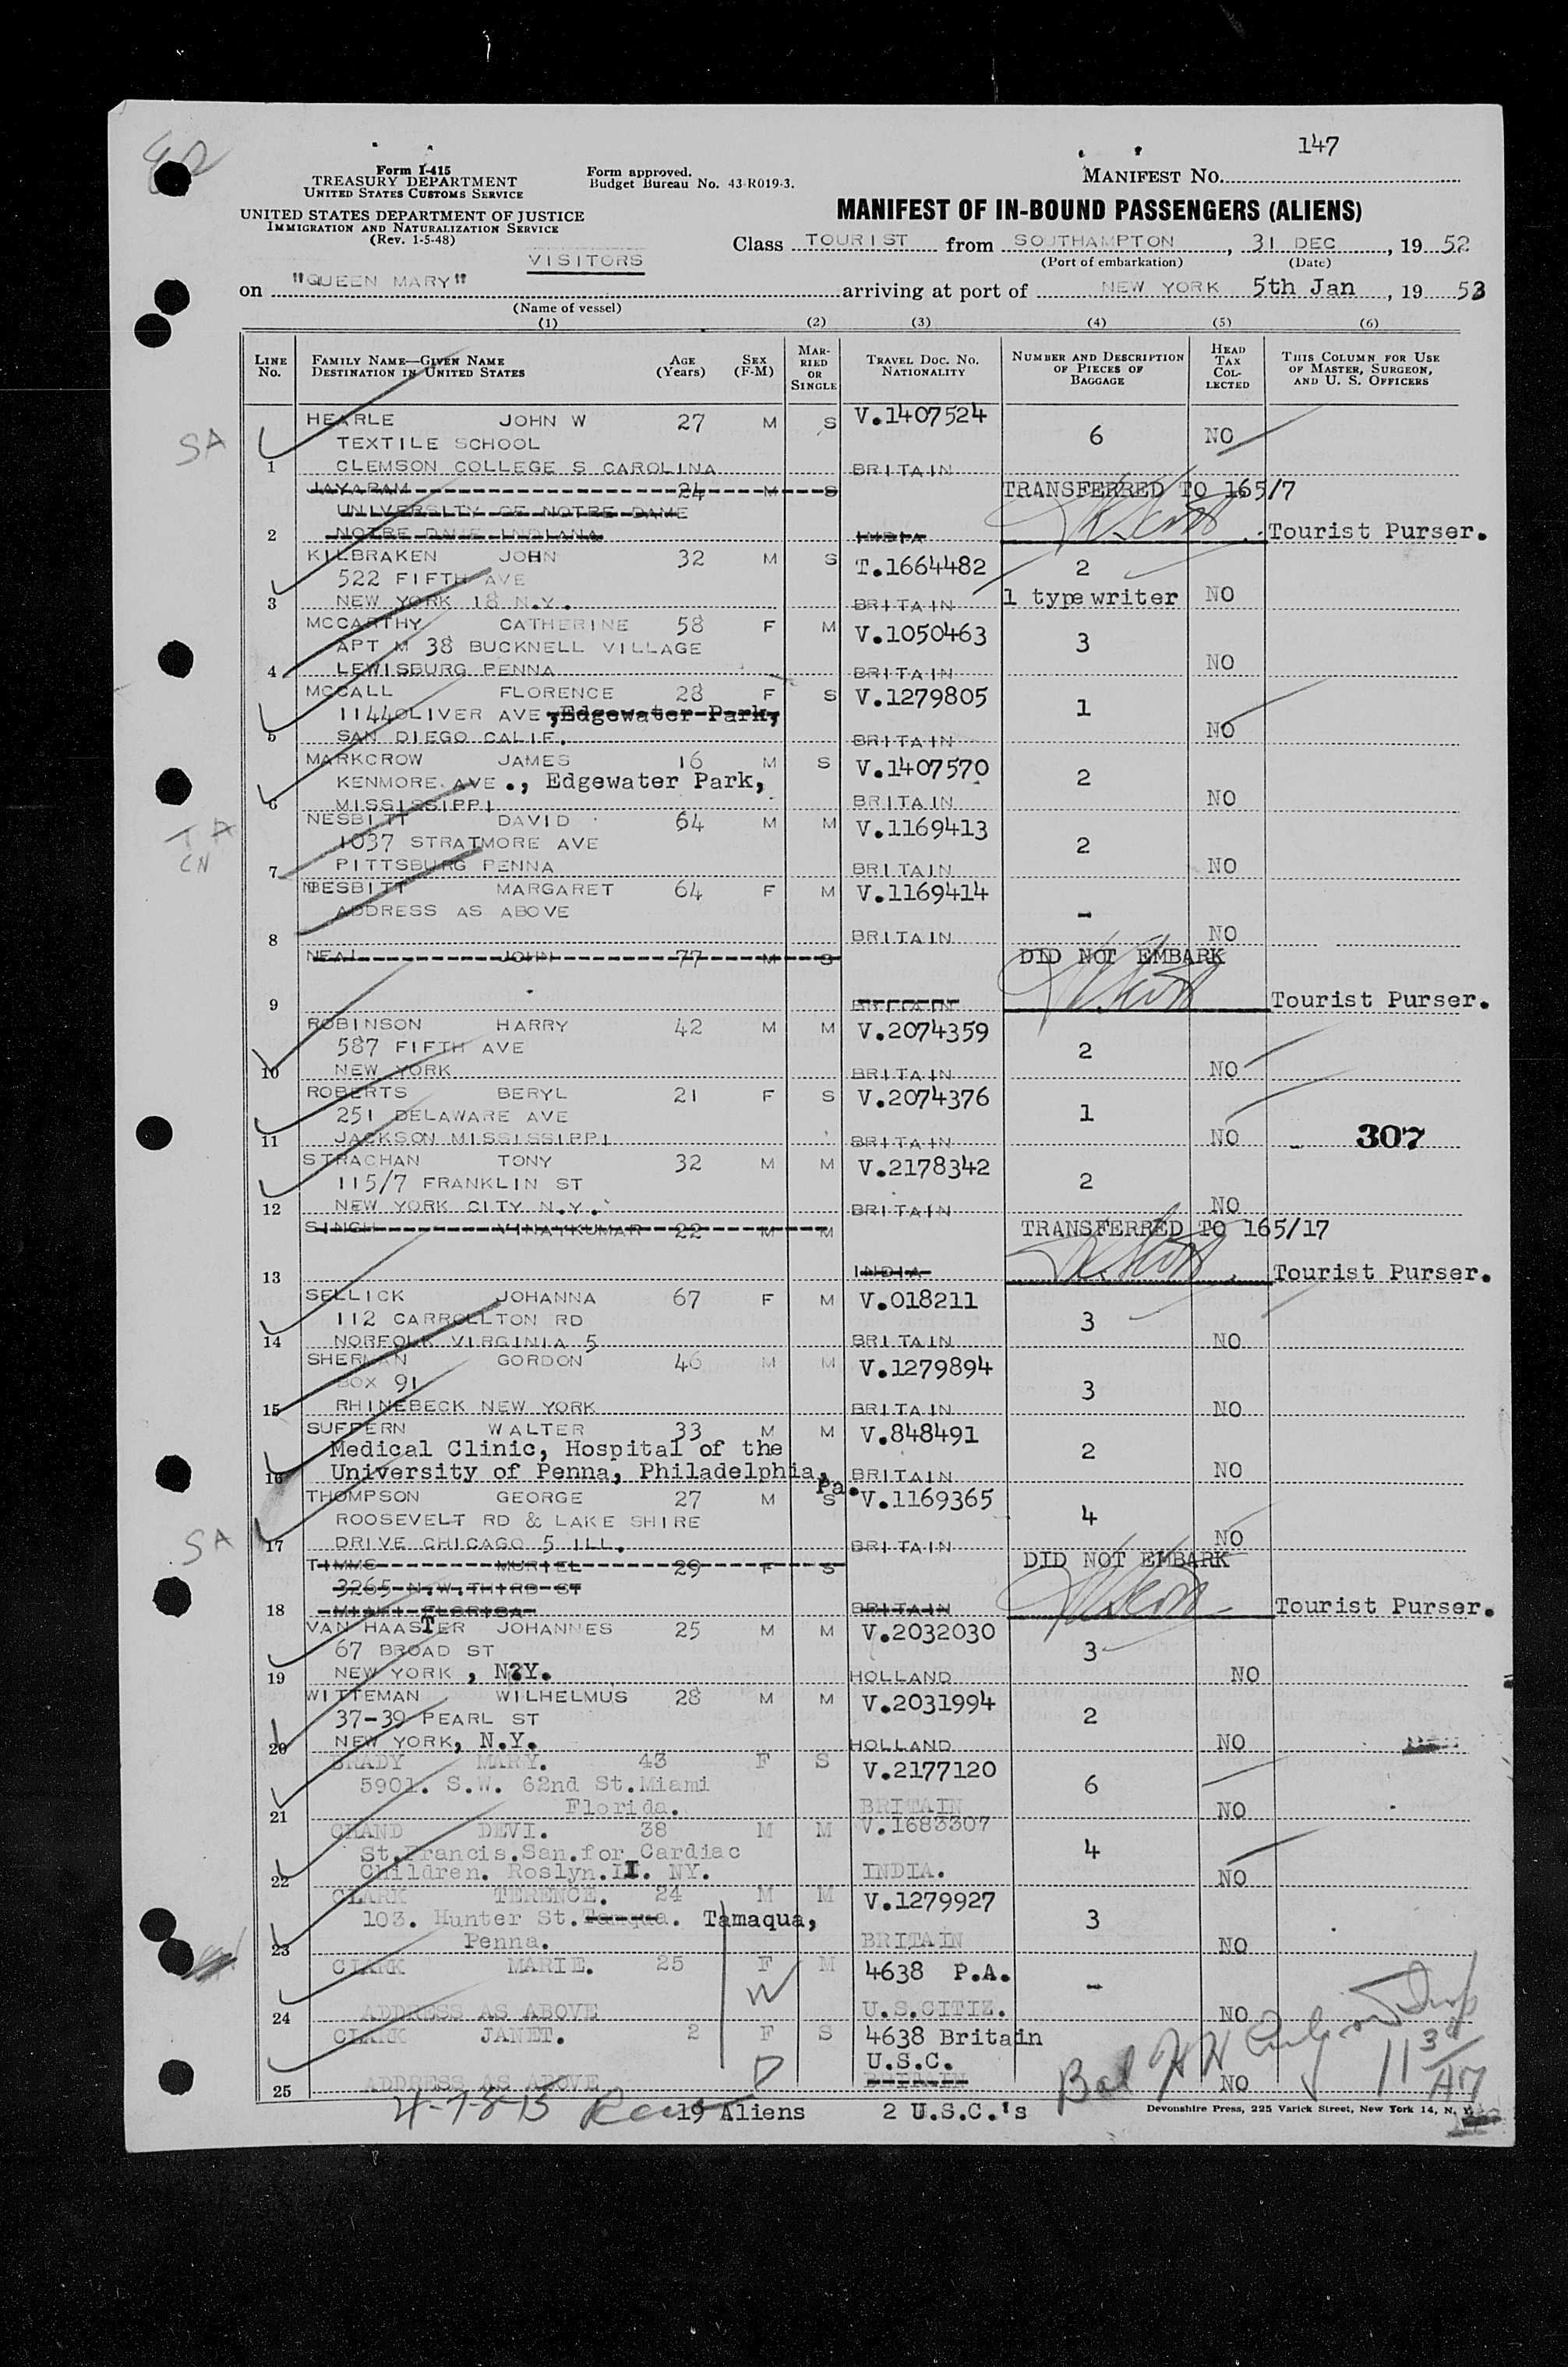 147
Form I-415
TREASURY DEPARTMENT
UNITED STATES CUSTOMS SERVICE
Form approved.
Budget Bureau No. 43-R019-3.
MANIFEST NO.
UNITED STATES DEPARTMENT OF JUSTICE
IMMIGRATION AND NATURALIZATION SERVICE
(Rev. 1-5-48)
MANIFEST OF IN-BOUND PASSENGERS (ALIENS)
VISITORS
Class TOURIST from SOUTHAMPTON, 31 DEC, 19 52
(Port of embarkation) (Date)
on "QUEEN MARY" arriving at port of NEW YORK 5th Jan, 19 53
(Name of vessel)
(1) (2) (3) (4) (5) (6)
LINE NO. FAMILY NAME—GIVEN NAME DESTINATION IN UNITED STATES AGE (Years) SEX (F-M) MARRIED OR SINGLE TRAVEL DOC. NO. NATIONALITY NUMBER AND DESCRIPTION OF PIECES OF BAGGAGE HEAD TAX COLLECTED THIS COLUMN FOR USE OF MASTER, SURGEON, AND U. S. OFFICERS
HEARLE JOHN W 27 M S V.1407524
SA TEXTILE SCHOOL 6 NO
1 CLEMSON COLLEGE S CAROLINA BRITAIN
JAYARAM 24 M S TRANSFERRED TO 165/7
UNIVERSITY OF NOTRE DAME
2 NOTRE DAME INDIANA INDIA Tourist Purser.
KILBRAKEN JOHN 32 M S T.1664482 2
522 FIFTH AVE
3 NEW YORK 18 N.Y. BRITAIN 1 typewriter NO
MCCARTHY CATHERINE 58 F M V.1050463 3
APT M 38 BUCKNELL VILLAGE
4 LEWISBURG PENNA BRITAIN NO
MCCALL FLORENCE 28 F S V.1279805 1
1144OLIVER AVE,Edgewater Park,
5 SAN DIEGO CALIF. BRITAIN NO
MARKCROW JAMES 16 M S V.1407570 2
KENMORE AVE., Edgewater Park,
6 MISSISSIPPI BRITAIN NO
NESBITT DAVID 64 M M V.1169413 2
TA
CN
1037 STRATMORE AVE
7 PITTSBURG PENNA BRITAIN NO
NESBITT MARGARET 64 F M V.1169414 -
ADDRESS AS ABOVE
8 BRITAIN NO
NEAL JOHN 77 M S DID NOT EMBARK
9 BRITAIN Tourist Purser.
ROBINSON HARRY 42 M M V.2074359 2
587 FIFTH AVE
10 NEW YORK BRITAIN NO
ROBERTS BERYL 21 F S V.2074376 1
251 DELAWARE AVE
11 JACKSON MISSISSIPPI BRITAIN NO 307
STRACHAN TONY 32 M M V.2178342 2
115/7 FRANKLIN ST
12 NEW YORK CITY N.Y. BRITAIN NO
SINGH VINAYKUMAR 22 M M TRANSFERRED TO 165/17
13 INDIA Tourist Purser.
SELLICK JOHANNA 67 F M V.018211 3
112 CARROLLTON RD
14 NORFOLK VIRGINIA 5 BRITAIN NO
SHERMAN GORDON 46 M M V.1279894 3
BOX 91
15 RHINEBECK NEW YORK BRITAIN NO
SUFFERN WALTER 33 M M V.848491 2
Medical Clinic, Hospital of the
16 University of Penna, Philadelphia, Pa. BRITAIN NO
THOMPSON GEORGE 27 M S V.1169365 4
ROOSEVELT RD & LAKE SHIRE
SA
17 DRIVE CHICAGO 5 ILL. BRITAIN NO
TIMMS MURIEL 29 F S DID NOT EMBARK
3265 N.W.THIRD ST
18 MIAMI FLORIDA BRITAIN Tourist Purser.
VAN HAASTER JOHANNES 25 M M V.2032030 3
67 BROAD ST
19 NEW YORK, N.Y. HOLLAND NO
WITTEMAN WILHELMUS 28 M M V.2031994 2
37-39 PEARL ST
20 NEW YORK, N.Y. HOLLAND NO
BRADY MARY. 43 F S V.2177120 6
5901. S.W. 62nd St.Miami
21 Florida. BRITAIN NO
CHAND DEVI. 38 M M V.1683307 4
St.Francis.San.for Cardiac
22 Children. Roslyn.II. NY. INDIA. NO
CLARK TERENCE. 24 M M V.1279927 3
103. Hunter St.Tamqua. Tamaqua,
23 Penna. BRITAIN NO
CLARK MARIE. 25 F M 4638 P.A. -
24 ADDRESS AS ABOVE U.S.CITIZ. NO
CLARK JANET. 2 F S 4638 Britain
U.S.C.
25 ADDRESS AS ABOVE BRITAIN NO
19 Aliens 2 U.S.C.'s
Devonshire Press, 225 Varick Street, New York 14, N. Y.